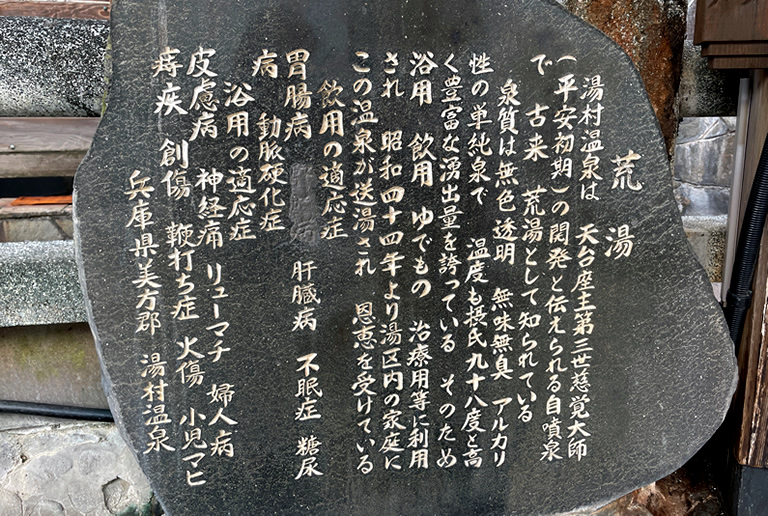 荒湯
湯村温泉は 天台座主第三世慈覚大師
(平安初期)の開発と伝えられる自噴泉
で 古来 荒湯として知られている
泉質は無色 透明 無味無臭 アルカリ
性の単純泉で 温度も摂氏九十八度と高
く豊富な湧出量を誇っている そのため
浴用 飲用 ゆでもの 治療用等に利用
され 昭和四十四年より湯区内の家庭に
この温泉が送湯され 恩恵を受けている
飲用の適応症
胃腸病 肝臓病 不眠症 糖尿
病 動脈硬化症
浴用の適応症
皮膚病 神経痛 リューマチ 婦人病
痔疾 創傷 鞭打ち症 火傷 小児マヒ
兵庫県美方郡 湯村温泉